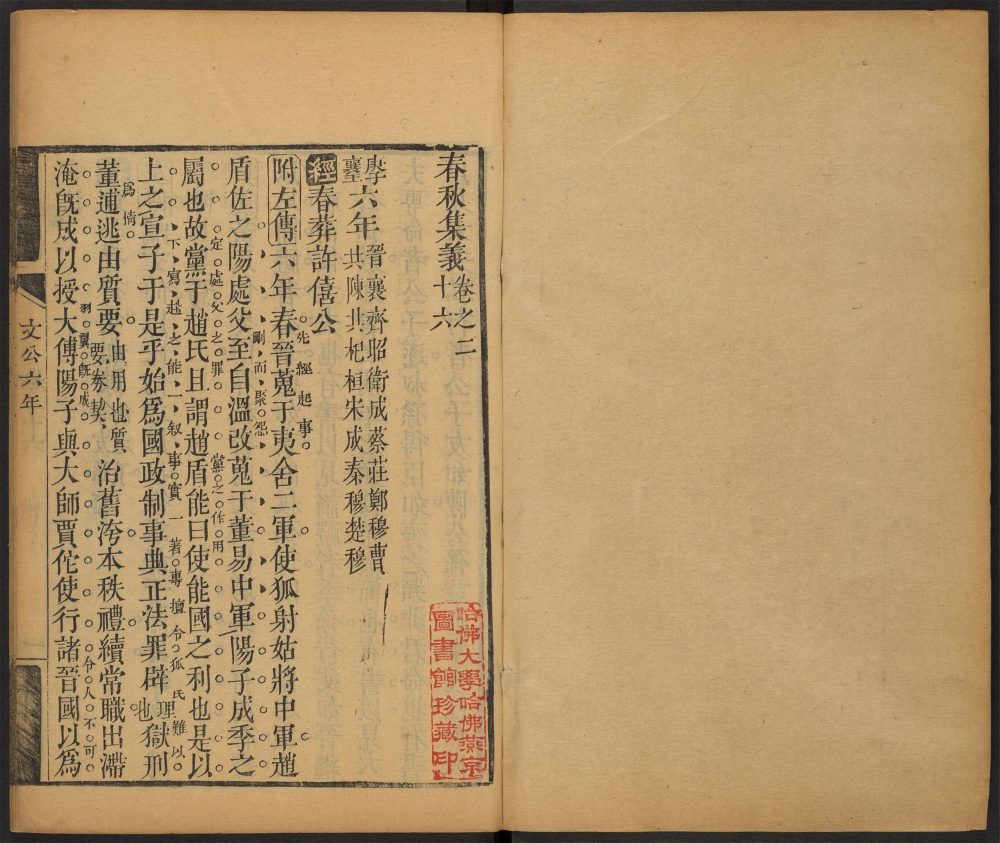 哈佛大學哈佛燕京
圖書館珍藏印
春秋集義卷之二
十六
六年
晉襄齊昭衛成蔡莊鄭穆曹
共陳共杞桓宋成秦穆楚穆
經春葬許僖公
先經起事
附左傳六年春晉蒐于夷舍二軍使狐射姑將中軍趙
剛而聚怨
盾佐之陽處父至自溫改蒐于董易中軍陽子成季之
定處父之罪
黨之作用
屬也故黨于趙氏且謂趙盾能曰使能國之利也是以
下寫趙之能一叙事實一著專擅令狐氏難以
爲情
上之宣子于是乎始爲國政制事典正法罪辟理也獄刑
董逋逃由質要由用也質要券契治舊洿本秩禮續常職出滯
羽翼旣成
令人不可
淹旣成以授大傅陽子與大師賈佗使行諸晉國以爲
文公六年